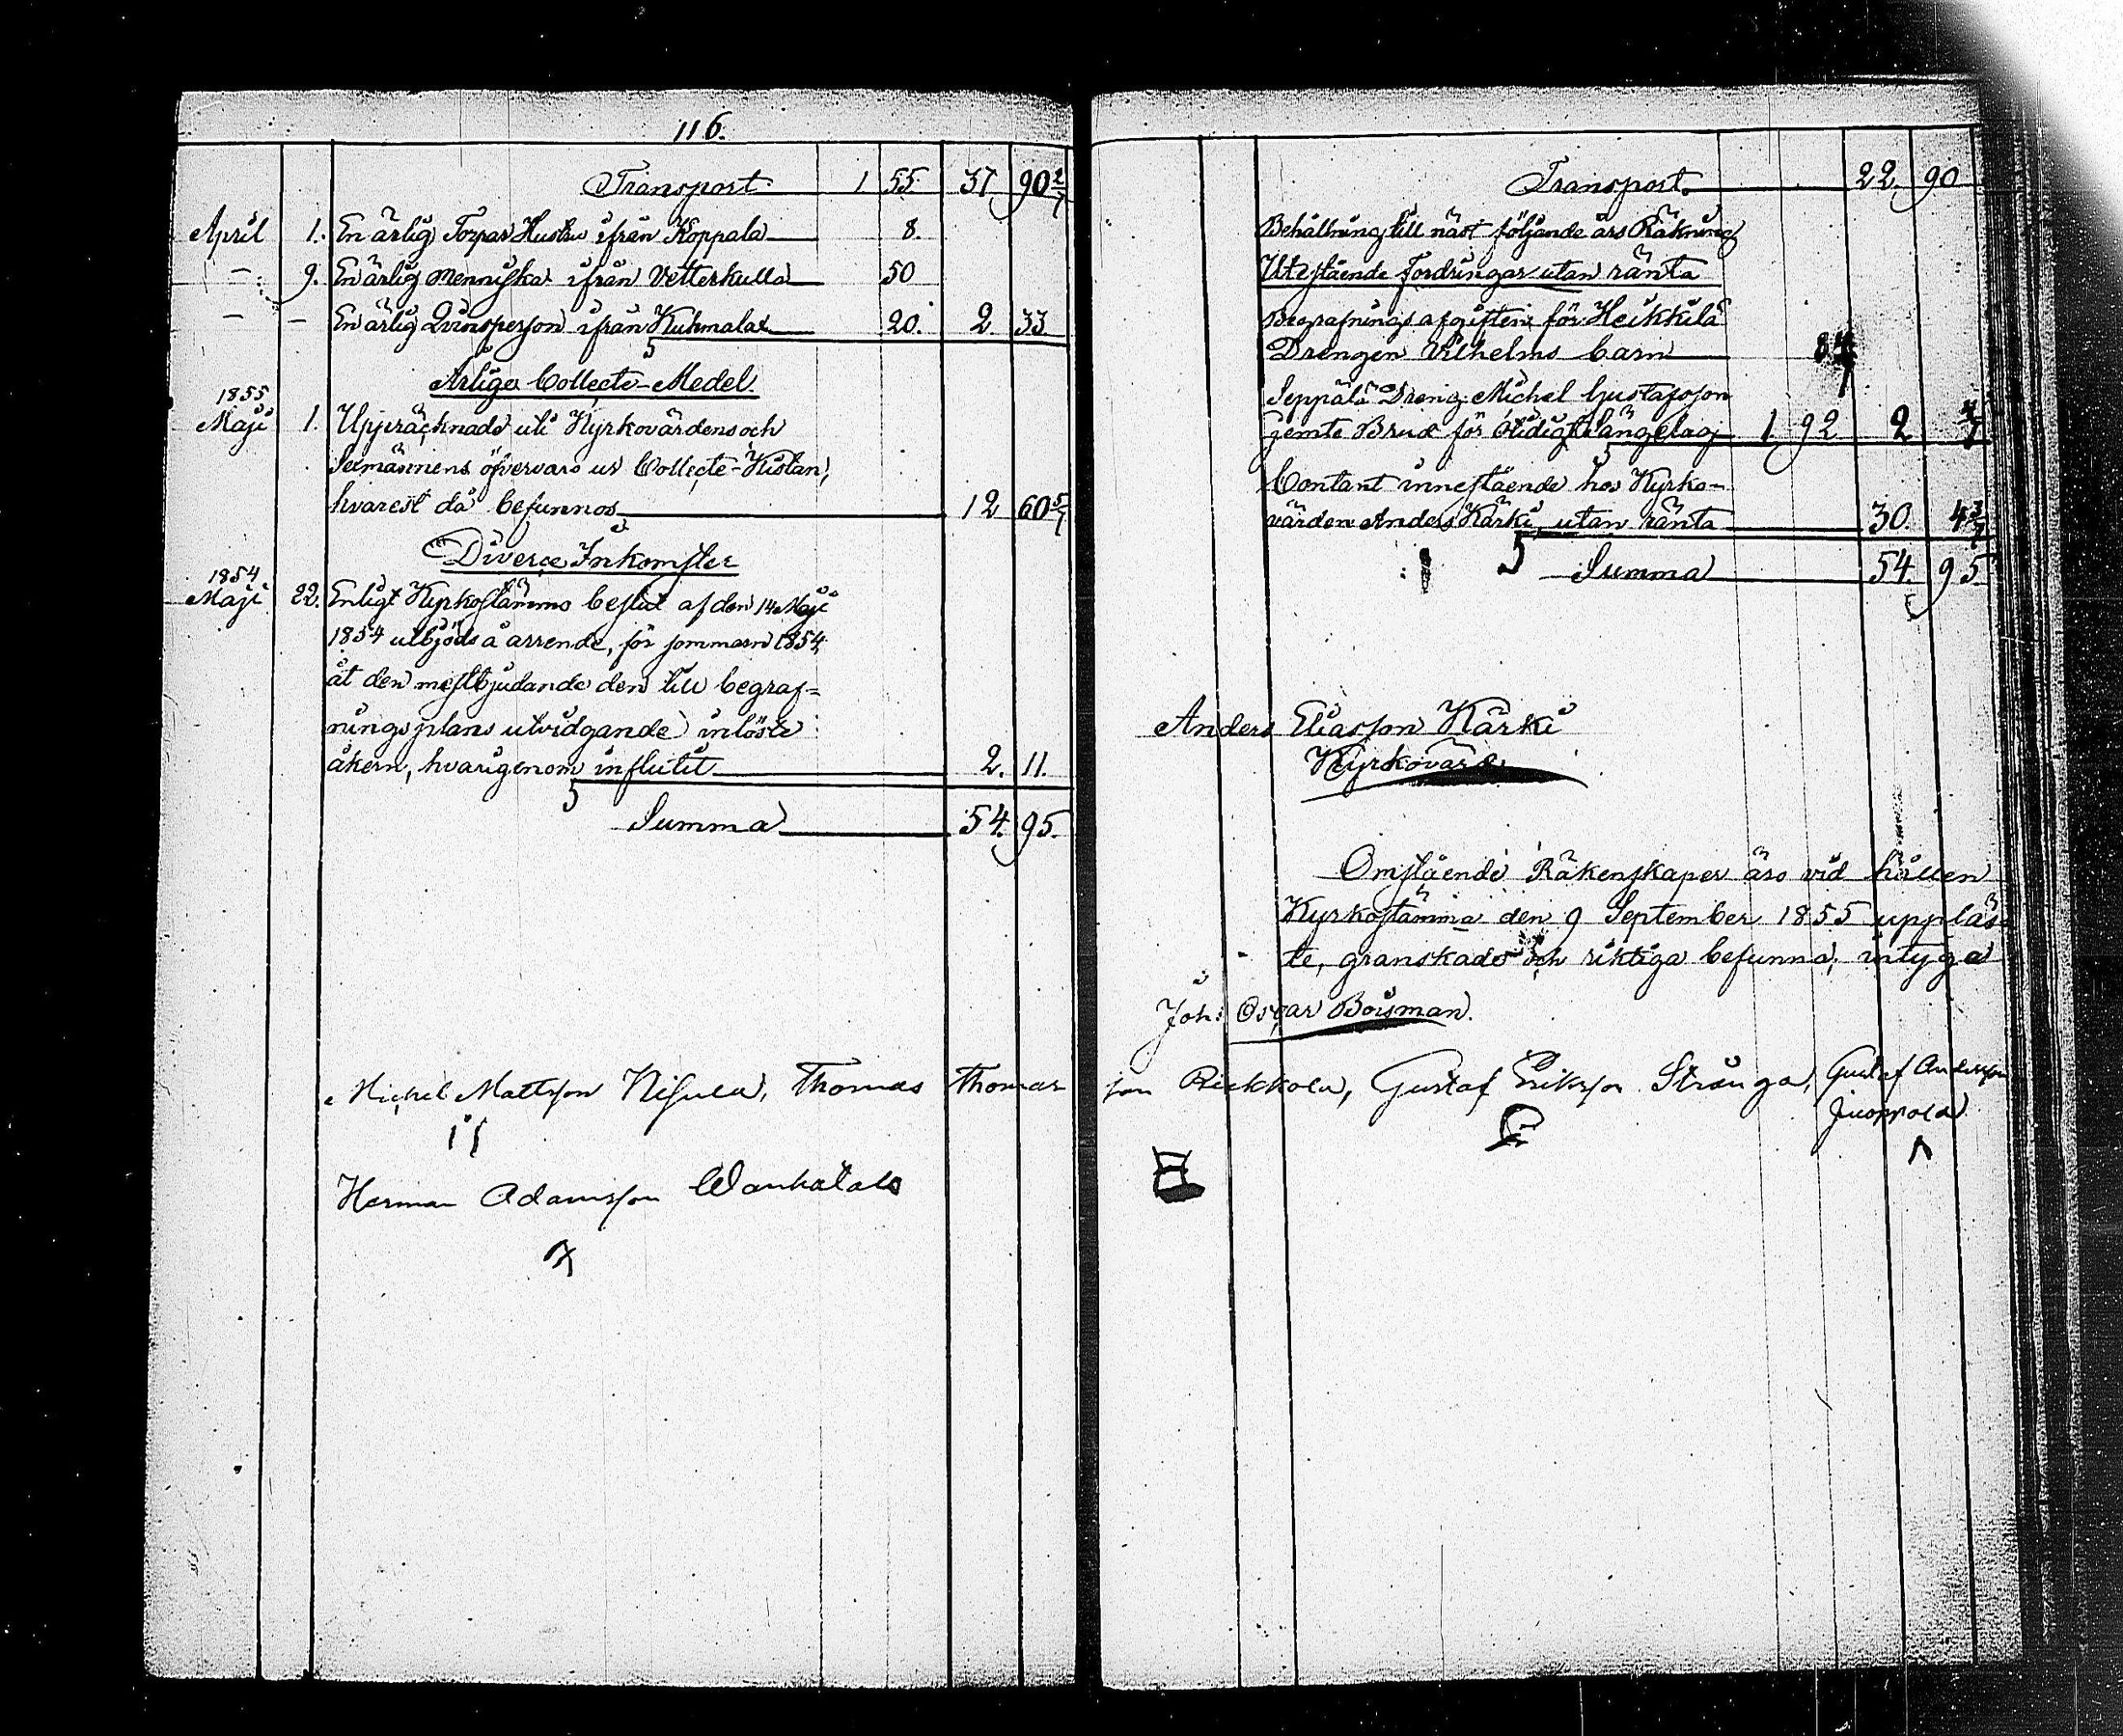 116.
Transport 1 55. 37 90 2/7
April 1. En ärlig Torpar Hustru ifrån Koppala 8.
— 9. En ärlig menniska ifrån Vetterkulla 50
— — En ärlig Qvinsperson ifrån Kuhmalax 20. 2. 33
Årliga Collecte-Medel.
1855
Maji 1. Uppräcknade uti Kyrkovärdens och
Sexmännens öfvervaro ur Collecte-Kistan,
hvarest då befunnos 12 60 5/7
Diverse Inkomster
1854
Maji 22. Enligt Kyrkostämmo beslut af den 14 Maji
1854 utbjöds å arrende, för sommarn 1854,
åt den mestbjudande den till begraf=
ningsplans utvidgande inlöste
åkern, hvarigenom influtit 2. 11.
Summa 54. 95.
Michel Mattsson Nisula, Thomas Thomas
Herman Adamsson Wanhatalo
Transport 22. 90
Behållning till näst följande års Räkning
Utestående fordringar utan ränta
Begrafnings afgiften för Heikkilä
Drengen Vilhelms barn
Seppälä Dreng Michel Gustafsson
jemte Brud för otidigt sängelag 1 92 2
Contant innestående hos Kyrko-
värden Anders Kärki, utan ränta 30. 4 3/7
Summa 54. 95.
Anders Eliasson Kärki
Kyrkovärd
Omstående Räkenskaper äro vid hållen
Kyrkostämma den 9 September 1855 uppläs
te, granskade och riktiga befunna, intyga
Joh: Oscar Boisman.
son Riekkola, Gustaf Eriksson Strånga, Gustaf Andersson
Juoppola